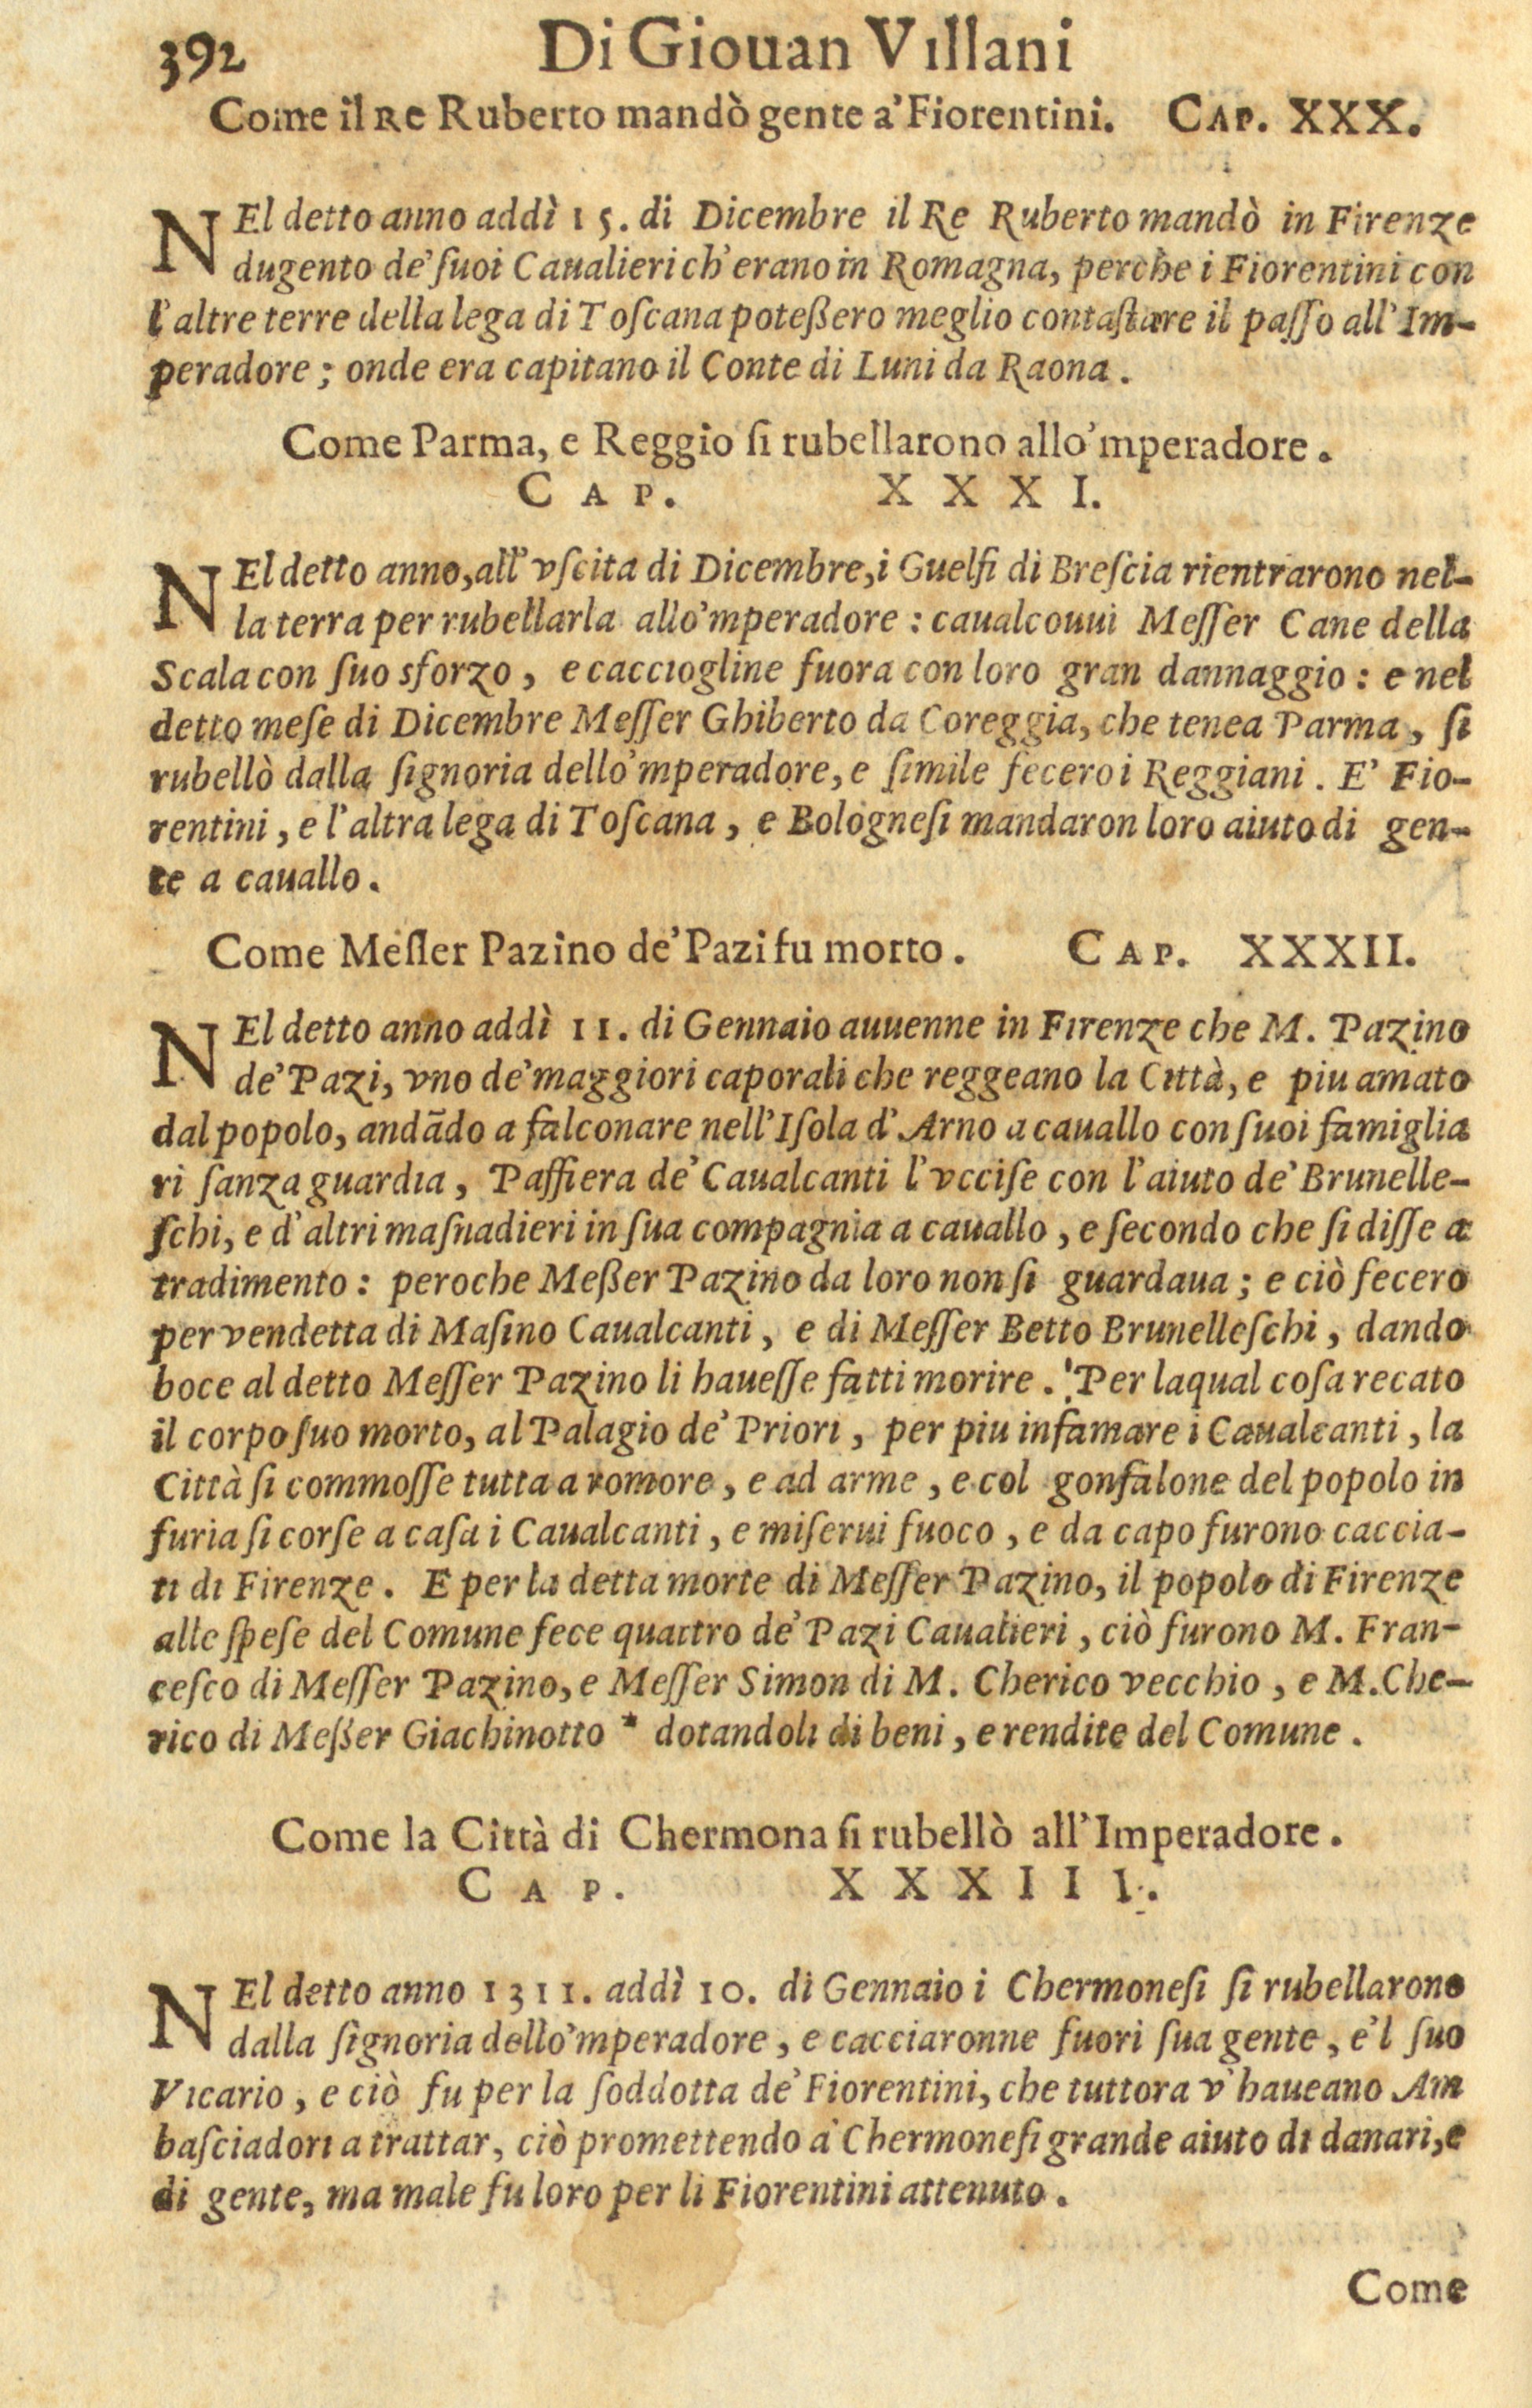 392 Di Giouan Villani
Come il Re Ruberto mandò gente a' Fiorentini. CAP. XXX.
NEl detto anno addì 15. di Dicembre il Re Ruberto mandò in Firenze
dugento de' ſuoi Caualieri ch' erano in Romagna, perche i Fiorentini con
l' altre terre della lega di Toſcana poteßero meglio contaſtare il paſſo all' Im-
peradore ; onde era capitano il Conte di Luni da Raona .
Come Parma, e Reggio ſi rubellarono allo 'mperadore .
CAP. XXXI.
NEl detto anno, all' vſcita di Dicembre, i Guelfi di Breſcia rientrarono nel-
la terra per rubellarla allo 'mperadore : caualcouui Meſſer Cane della
Scala con ſuo sforzo , e cacciogline fuora con loro gran dannaggio : e nel
detto meſe di Dicembre Meſſer Ghiberto da Coreggia, che tenea Parma , ſi
rubellò dalla ſignoria dello 'mperadore, e ſimile fecero i Reggiani . E' Fio-
rentini , e l' altra lega di Toſcana , e Bologneſi mandaron loro aiuto di gen-
te a cauallo .
Come Meſſer Pazino de' Pazi fu morto . CAP. XXXII.
NEl detto anno addì 11. di Gennaio auuenne in Firenze che M. Pazino
de' Pazi, vno de' maggiori caporali che reggeano la Città, e piu amato
dal popolo, andãdo a falconare nell' Iſola d' Arno a cauallo con ſuoi famiglia
ri ſanza guardia , Paſſiera de' Caualcanti l' vcciſe con l' aiuto de' Brunelle-
ſchi, e d' altri maſnadieri in ſua compagnia a cauallo , e ſecondo che ſi diſſe a
tradimento : peroche Meßer Pazino da loro non ſi guardaua ; e ciò fecero
per vendetta di Maſino Caualcanti , e di Meſſer Betto Brunelleſchi , dando
boce al detto Meſſer Pazino li haueſſe fatti morire . Per laqual coſa recato
il corpo ſuo morto, al Palagio de' Priori , per piu infamare i Caualcanti , la
Città ſi commoſſe tutta a romore , e ad arme , e col gonfalone del popolo in
furia ſi corſe a caſa i Caualcanti , e miſerui fuoco , e da capo furono caccia-
ti di Firenze . E per la detta morte di Meſſer Pazino, il popolo di Firenze
alle ſpeſe del Comune fece quattro de' Pazi Caualieri , ciò furono M. Fran-
ceſco di Meſſer Pazino, e Meſſer Simon di M. Cherico vecchio , e M. Che-
rico di Meßer Giachinotto * dotandoli di beni , e rendite del Comune .
Come la Città di Chermona ſi rubellò all' Imperadore .
CAP. XXXIII.
NEl detto anno 1311. addì 10. di Gennaio i Chermoneſi ſi rubellarono
dalla ſignoria dello 'mperadore , e cacciaronne fuori ſua gente , e 'l ſuo
Vicario , e ciò fu per la ſoddotta de' Fiorentini, che tuttora v' haueano Am
baſciadori a trattar, ciò promettendo a' Chermoneſi grande aiuto di danari, e
di gente, ma male fu loro per li Fiorentini attenuto .
Come